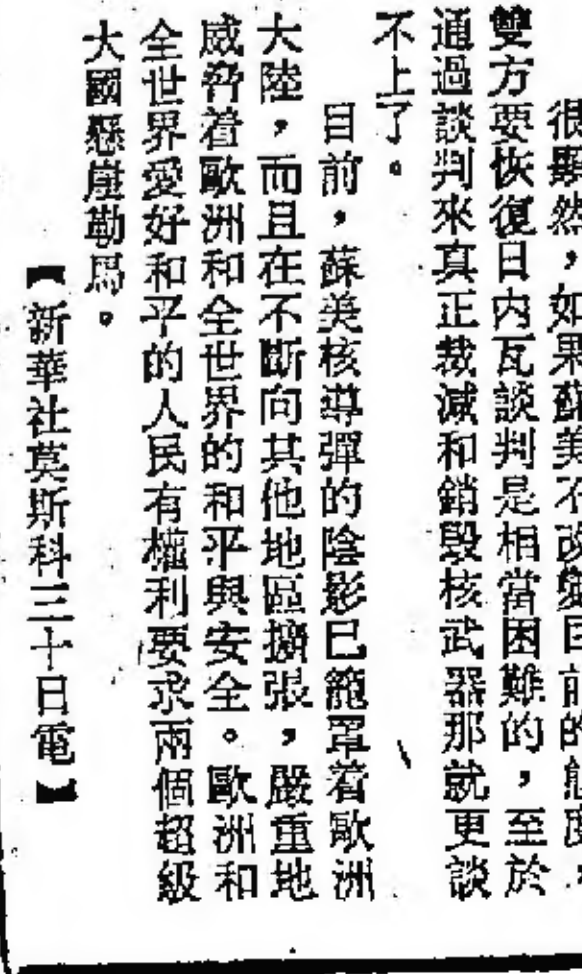 很顯然，如果蘇美不改變目前的態度，
雙方要恢復日内瓦談判是相當困難的，至於
通過談判來真正裁減和銷毀核武器那就更談
不上了。
目前，蘇美核導彈的陰影已籠罩着歐洲
大陸，而且在不斷向其他地區擴張，嚴重地
威脅着歐洲和全世界的和平與安全。歐洲和
全世界愛好和平的人民有權利要求兩個超級
大國懸崖勒馬。
【新華社莫斯科三十日電】